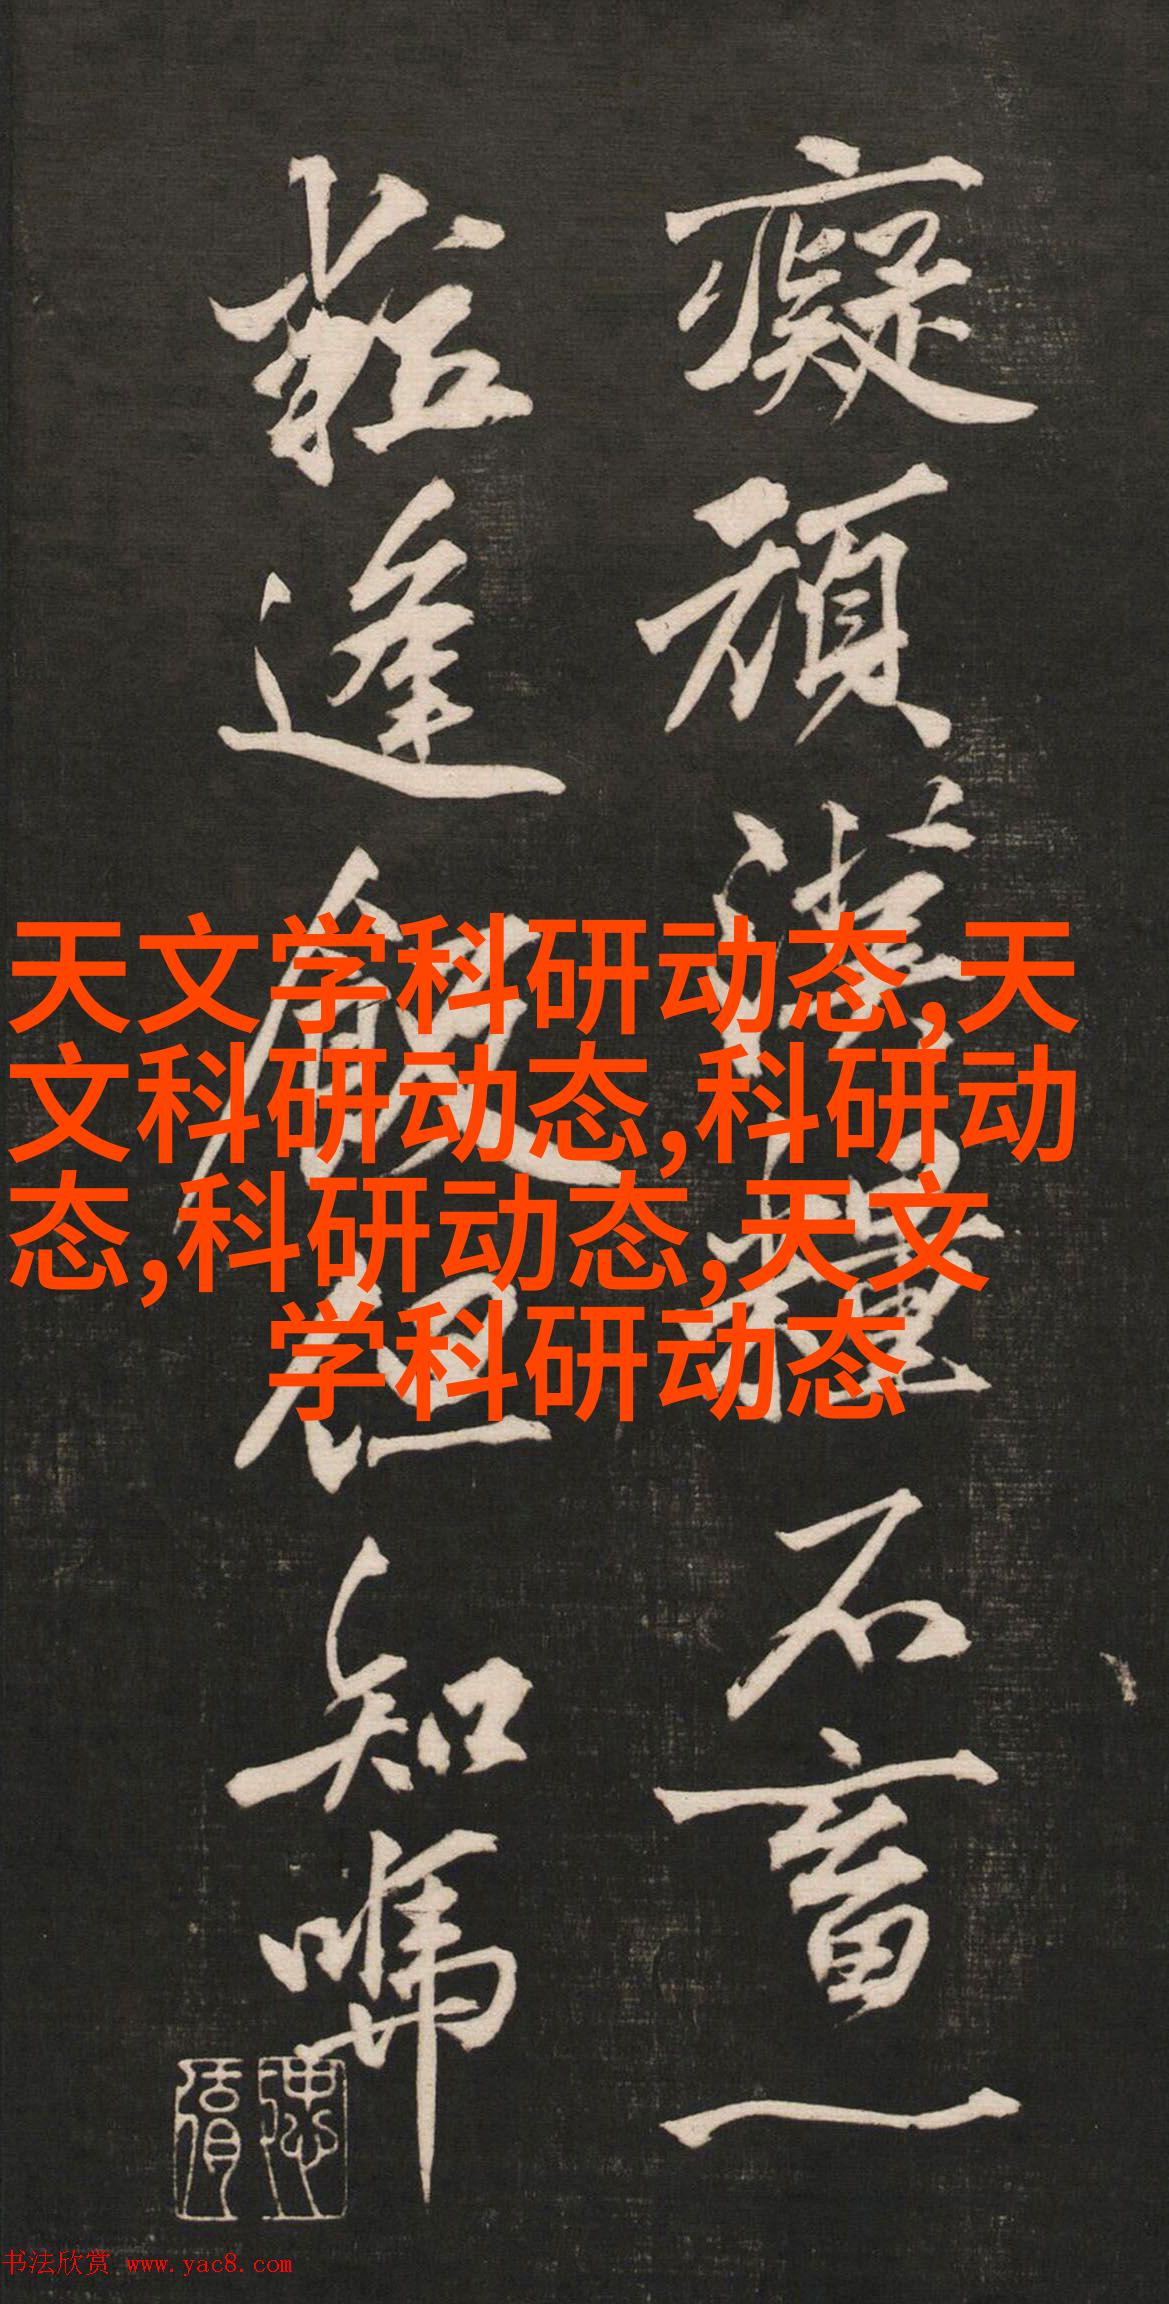 癡頑漢糧不畜一
粒逢飯但知
天文学科研动态,天
文科研动态,科研动
态,科研动态,天文
学科研动态
书法欣赏 www.yac8.com